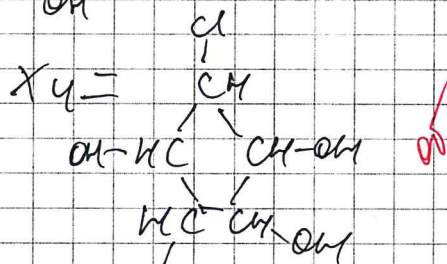 OH
Cl
X4= CH
OH-HC CH-OH
HC CH OH